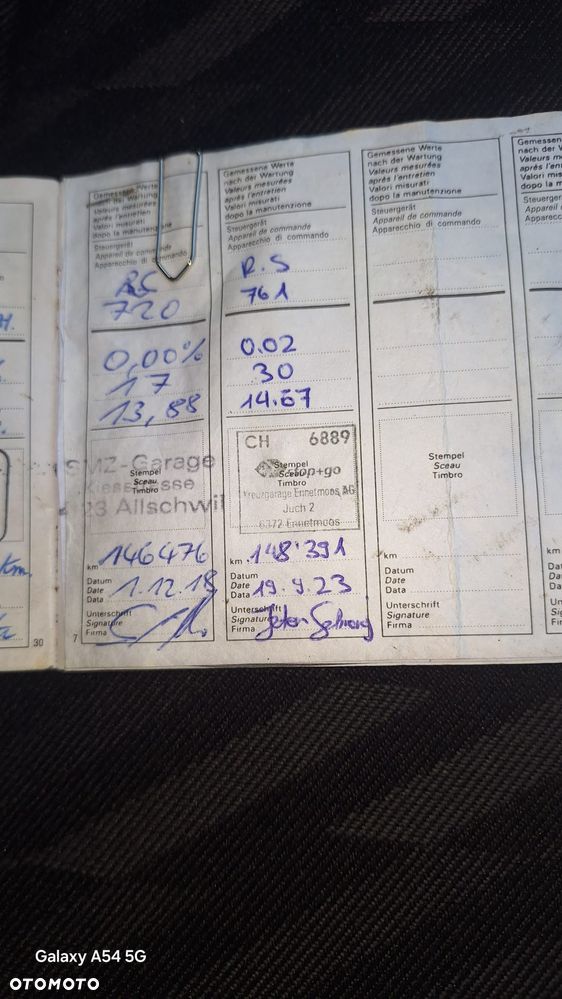 Gemessene Werte
nach der Wartung
Valeurs mesurées
après l'entretien
Valori misurati
dopo la manutenzione
Steuergerät
Appareil de commande
Apparecchio di commando
720
0,00%
17
13,88
SMZ-Garage
Stempel
Sceau
Timbro
23 Allschwil
km 146476
Datum
Date
Data
1.12.18
Unterschrift
Signature
Firma
30
7
Gemessene Werte
nach der Wartung
Valeurs mesurées
après l'entretien
Valori misurati
dopo la manutenzione
Steuergerät
Appareil de commande
Apparecchio di commando
R.S
761
0.02
30
14.67
CH 6889
Stempel
Sceau
Timbro
stop+go
Kreuzgarage Ennetmoos AG
Juch 2
6372 Ennetmoos
km 148'391
Datum
Date
Data
19.9.23
Unterschrift
Signature
Firma
Gemessene Werte
nach der Wartung
Valeurs mesurées
après l'entretien
Valori misurati
dopo la manutenzione
Steuergerät
Appareil de commande
Apparecchio di commando
Stempel
Sceau
Timbro
km
Datum
Date
Data
Unterschrift
Signature
Firma
Galaxy A54 5G
OTOMOTO